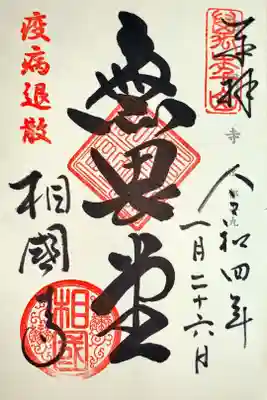 奉拝
令和四年
一月二十六日
無畏堂
疫病退散
相國寺
相國